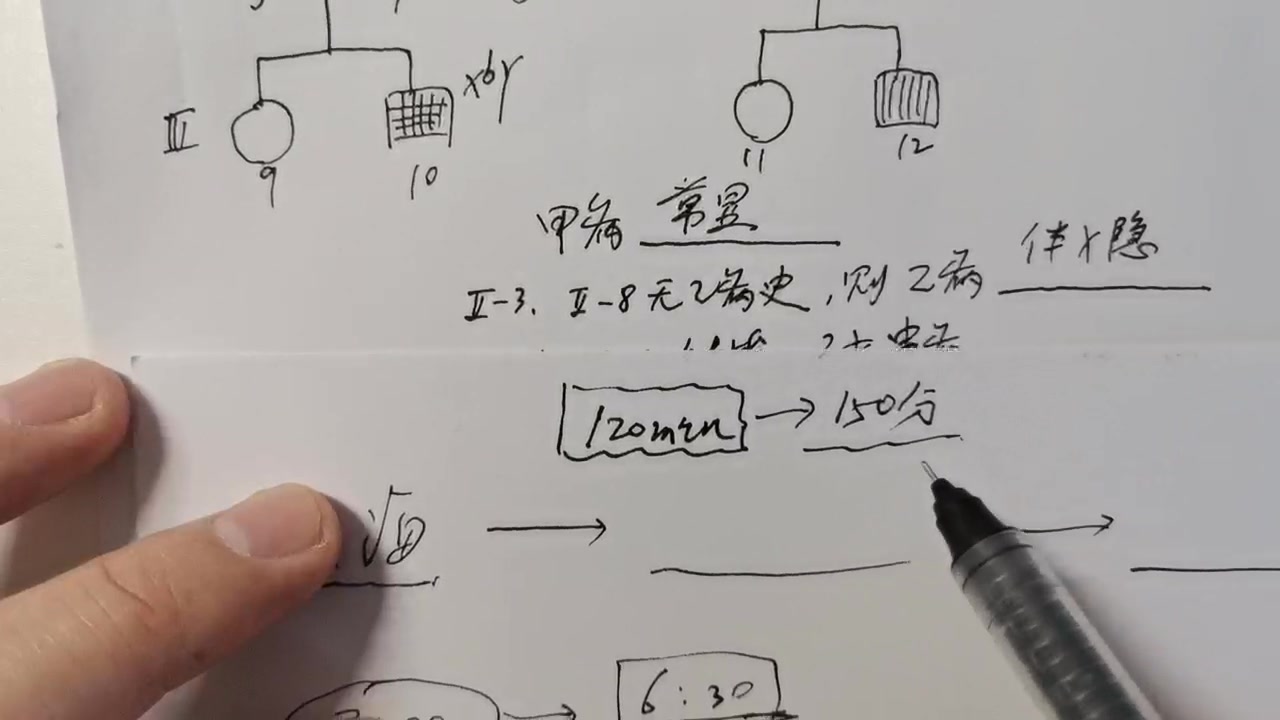 X^bY
III
9 10 11 12
甲病 常显
II-3. II-8 无乙病史,则乙病 伴X隐
120min → 150分
6:30